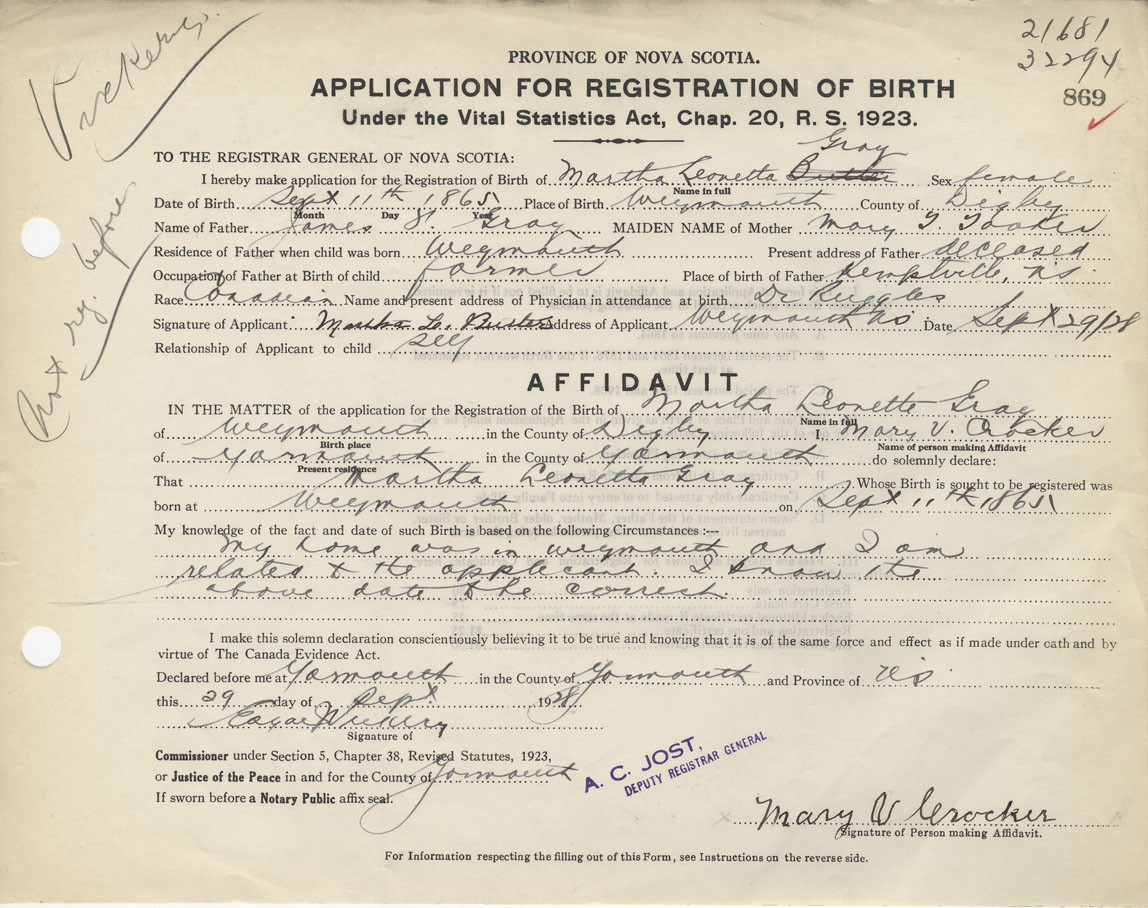 21681
32294
869
Vickery.
Not reg. before
PROVINCE OF NOVA SCOTIA.
APPLICATION FOR REGISTRATION OF BIRTH
Under the Vital Statistics Act, Chap. 20, R. S. 1923.
Gray
TO THE REGISTRAR GENERAL OF NOVA SCOTIA:
I hereby make application for the Registration of Birth of Martha Leonetta Butler Sex female
Name in full
Date of Birth Sept 11th 1865 Place of Birth Weymouth County of Digby
Month Day Year
Name of Father James Gray MAIDEN NAME of Mother Mary T. Tooker
Residence of Father when child was born Weymouth Present address of Father deceased
Occupation of Father at Birth of child farmer Place of birth of Father Kemptville, N.S.
Race Canadian Name and present address of Physician in attendance at birth Dr Ruggles
Signature of Applicant Martha L. Butler Address of Applicant Weymouth NS Date Sept 29/28
Relationship of Applicant to child self
AFFIDAVIT
IN THE MATTER of the application for the Registration of the Birth of Martha Leonette Gray
Name in full
of Weymouth in the County of Digby I, Mary V. Crocker
Birth place Name of person making Affidavit
of Yarmouth in the County of Yarmouth do solemnly declare:
Present residence
That Martha Leonetta Gray Whose Birth is sought to be registered was
born at Weymouth on Sept 11th 1865
My knowledge of the fact and date of such Birth is based on the following Circumstances :—
My home was in Weymouth and I am
related to the applicant. I know the
above date to be correct.
I make this solemn declaration conscientiously believing it to be true and knowing that it is of the same force and effect as if made under oath and by
virtue of The Canada Evidence Act.
Declared before me at Yarmouth in the County of Yarmouth and Province of N.S.
this 29 day of Sept 1928
Edgar Vickery
Signature of
Commissioner under Section 5, Chapter 38, Revised Statutes, 1923,
or Justice of the Peace in and for the County of Yarmouth
If sworn before a Notary Public affix seal.
A. C. JOST,
DEPUTY REGISTRAR GENERAL
Mary V Crocker
Signature of Person making Affidavit.
For Information respecting the filling out of this Form, see Instructions on the reverse side.